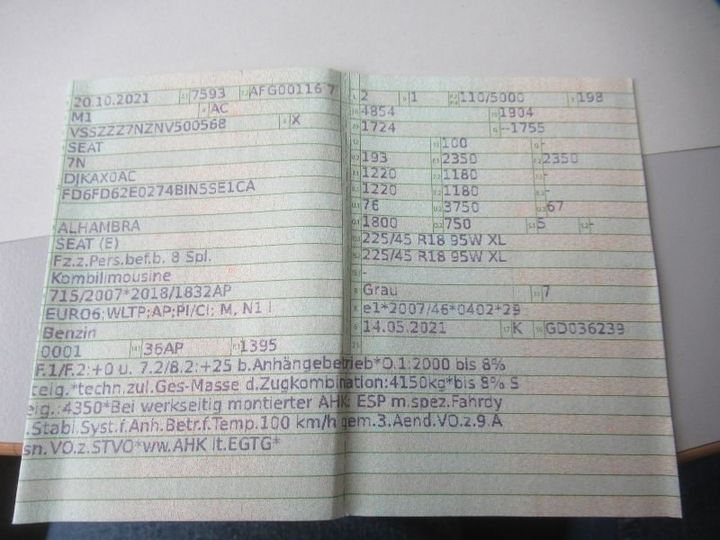 20.10.2021 7593 AFG00116 7
M1 AC
VSSZZZ7NZNV500568 X
SEAT
7N
DJKAX0AC
FD6FD62E0274BIN5SE1CA
ALHAMBRA
SEAT (E)
Fz.z.Pers.bef.b. 8 Spl.
Kombilimousine
715/2007*2018/1832AP
EURO6;WLTP;AP;PI/CI; M, N1 I
Benzin
0001 36AP 1395
2 1 110/5000 198
4854 1904
1724 --1755
100 -
193 2350 2350
1220 1180 -
1220 1180 -
76 3750 67
1800 750 5 -
225/45 R18 95W XL
225/45 R18 95W XL
-
Grau 7
e1*2007/46*0402*29
14.05.2021 K GD036239
F.1/F.2:+0 u. 7.2/8.2:+25 b.Anhängebetrieb*O.1:2000 bis 8%
teig.*techn.zul.Ges-Masse d.Zugkombination:4150kg*bis 8% S
eig.:4350*Bei werkseitig montierter AHK: ESP m.spez.Fahrdy
.Stabi.Syst.f.Anh.Betr.f.Temp.100 km/h gem.3.Aend.VO.z.9.A
sn.VO.z.STVO*ww.AHK lt.EGTG*